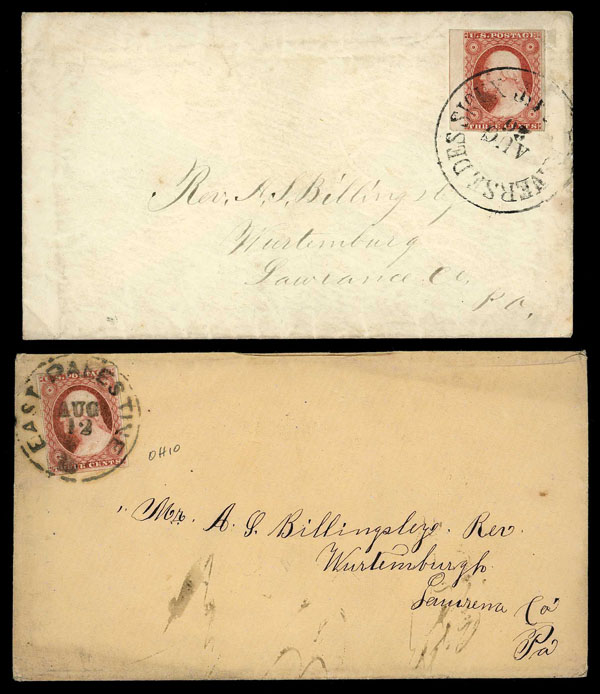 U.S. POSTAGE
THREE CENTS
VERSE DES SIOUX
AUG
Rev. A. S. Billingsly
Wurtemburg
Lawrance Co.
Pa.
EAST PALESTINE
AUG
12
CENTS
OHIO
Mr. A. S. Billingsleye. Rev.
Wurtemburgh
Co
Pa